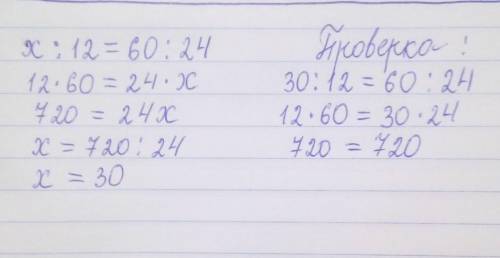 x : 12 = 60 : 24
12 · 60 = 24 · x
720 = 24x
x = 720 : 24
x = 30
Проверка :
30 : 12 = 60 : 24
12 · 60 = 30 · 24
720 = 720